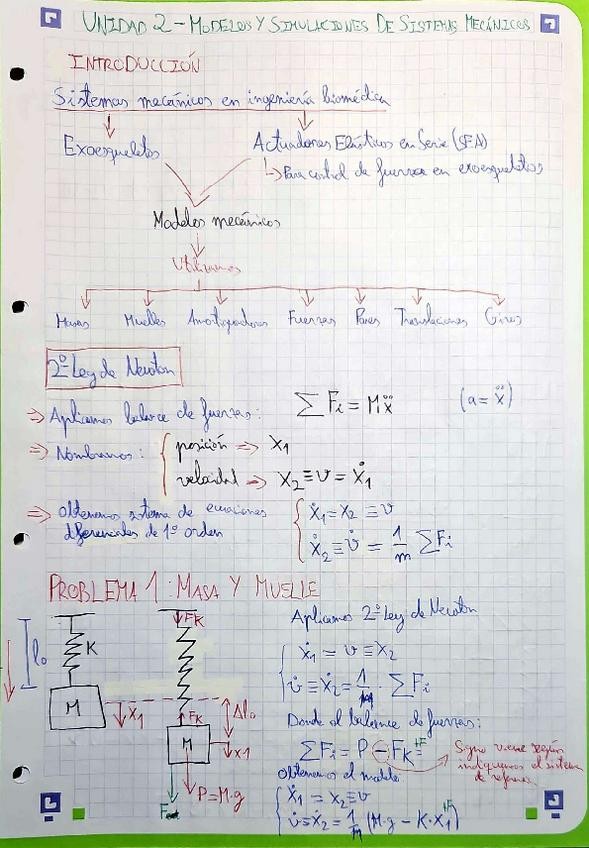 UNIDAD 2 - MODELOS Y SIMULACIONES DE SISTEMAS MECÁNICOS
INTRODUCCIÓN
Sistemas mecánicos en ingeniería biomédica
Exoesqueletos
Actuadores Elásticos en Serie (SEA)
↳ Para control de fuerza en exoesqueletos
Modelos mecánicos
Utilizamos
Masas Muelles Amortiguadores Fuerzas Pares Translaciones Giros
2º Ley de Newton
⇒ Aplicamos balance de fuerzas: ∑ Fi = Mẍ (a = ẍ)
⇒ Nombramos: { posición ⇒ x1
velocidad → x2 ≡ v = ẋ1
⇒ obtenemos sistema de ecuaciones
diferenciales de 1º orden
{ ẋ1 = x2 ≡ v
ẋ2 ≡ v̇ = 1/m ∑ Fi
PROBLEMA 1: MASA Y MUELLE
l0
K
M
x1
FK
FK
Δl0
M
x1
P = M·g
Fext
Aplicamos 2º Ley de Newton
{ ẋ1 = v ≡ x2
v̇ ≡ ẋ2 = 1/m · ∑ Fi
Donde el balance de fuerzas:
∑ Fi = P - FK +F
Signo viene según
indiquemos el sistema
de referencia
Obtenemos el modelo
{ ẋ1 = x2 ≡ v
v̇ ≡ ẋ2 = 1/m (M·g - K·x1 +F)